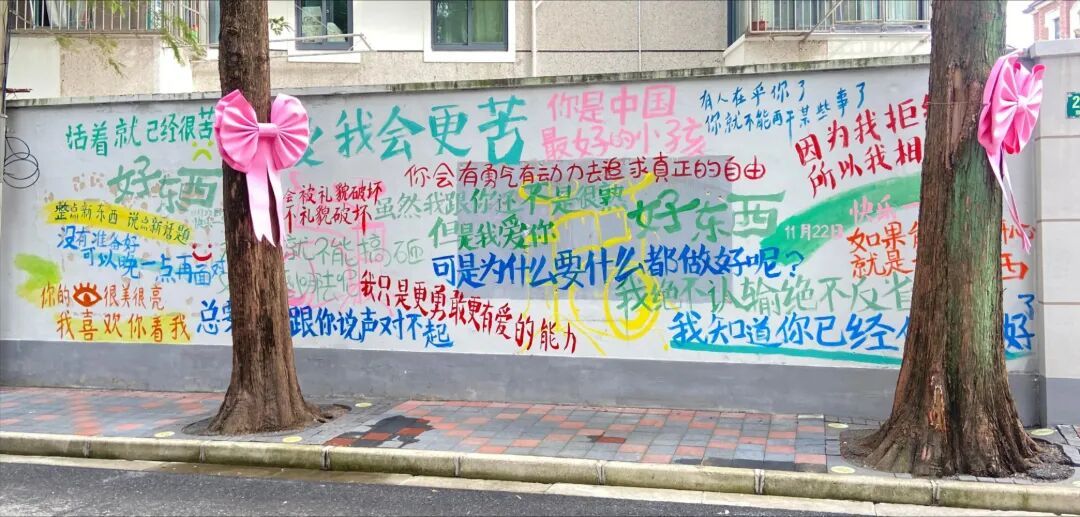 活着就已经很苦
我会更苦
你是中国
最好的小孩
有人在乎你了
你就不能再干某些事了
因为我拒
所以我相
好东西
你会有勇气有动力去追求真正的自由
会被礼貌破坏
不礼貌破坏
虽然我跟你还不是很熟
但是我爱你
好东西
11月22日
快乐
如果
就是
整点新东西 说点新话题
没有准备好
可以晚一点再面对
就不能搞砸
可是为什么要什么都做好呢?
我绝不认输绝不反省
你的很美很亮
我喜欢你看我
总
跟你说声对不起
我只是更勇敢更有爱的能力
我知道你已经
好了